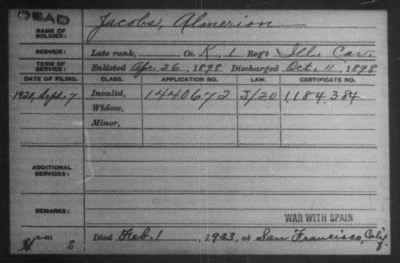 DEAD
NAME OF SOLDIER: Jacobs, Almerion
SERVICE: Late rank, Co. K, 1 Reg't Ills. Cav.
TERM OF SERVICE: Enlisted Apr. 26, 1898 Discharged Oct. 11, 1898
DATE OF FILING. CLASS. APPLICATION NO. LAW. CERTIFICATE NO.
1920, Sept. 7 Invalid, 1440672 3/20 1,184,384
Widow,
Minor,
ADDITIONAL SERVICES:
REMARKS: WAR WITH SPAIN
S Died Feb. 1, 1933, at San Francisco, Calif.